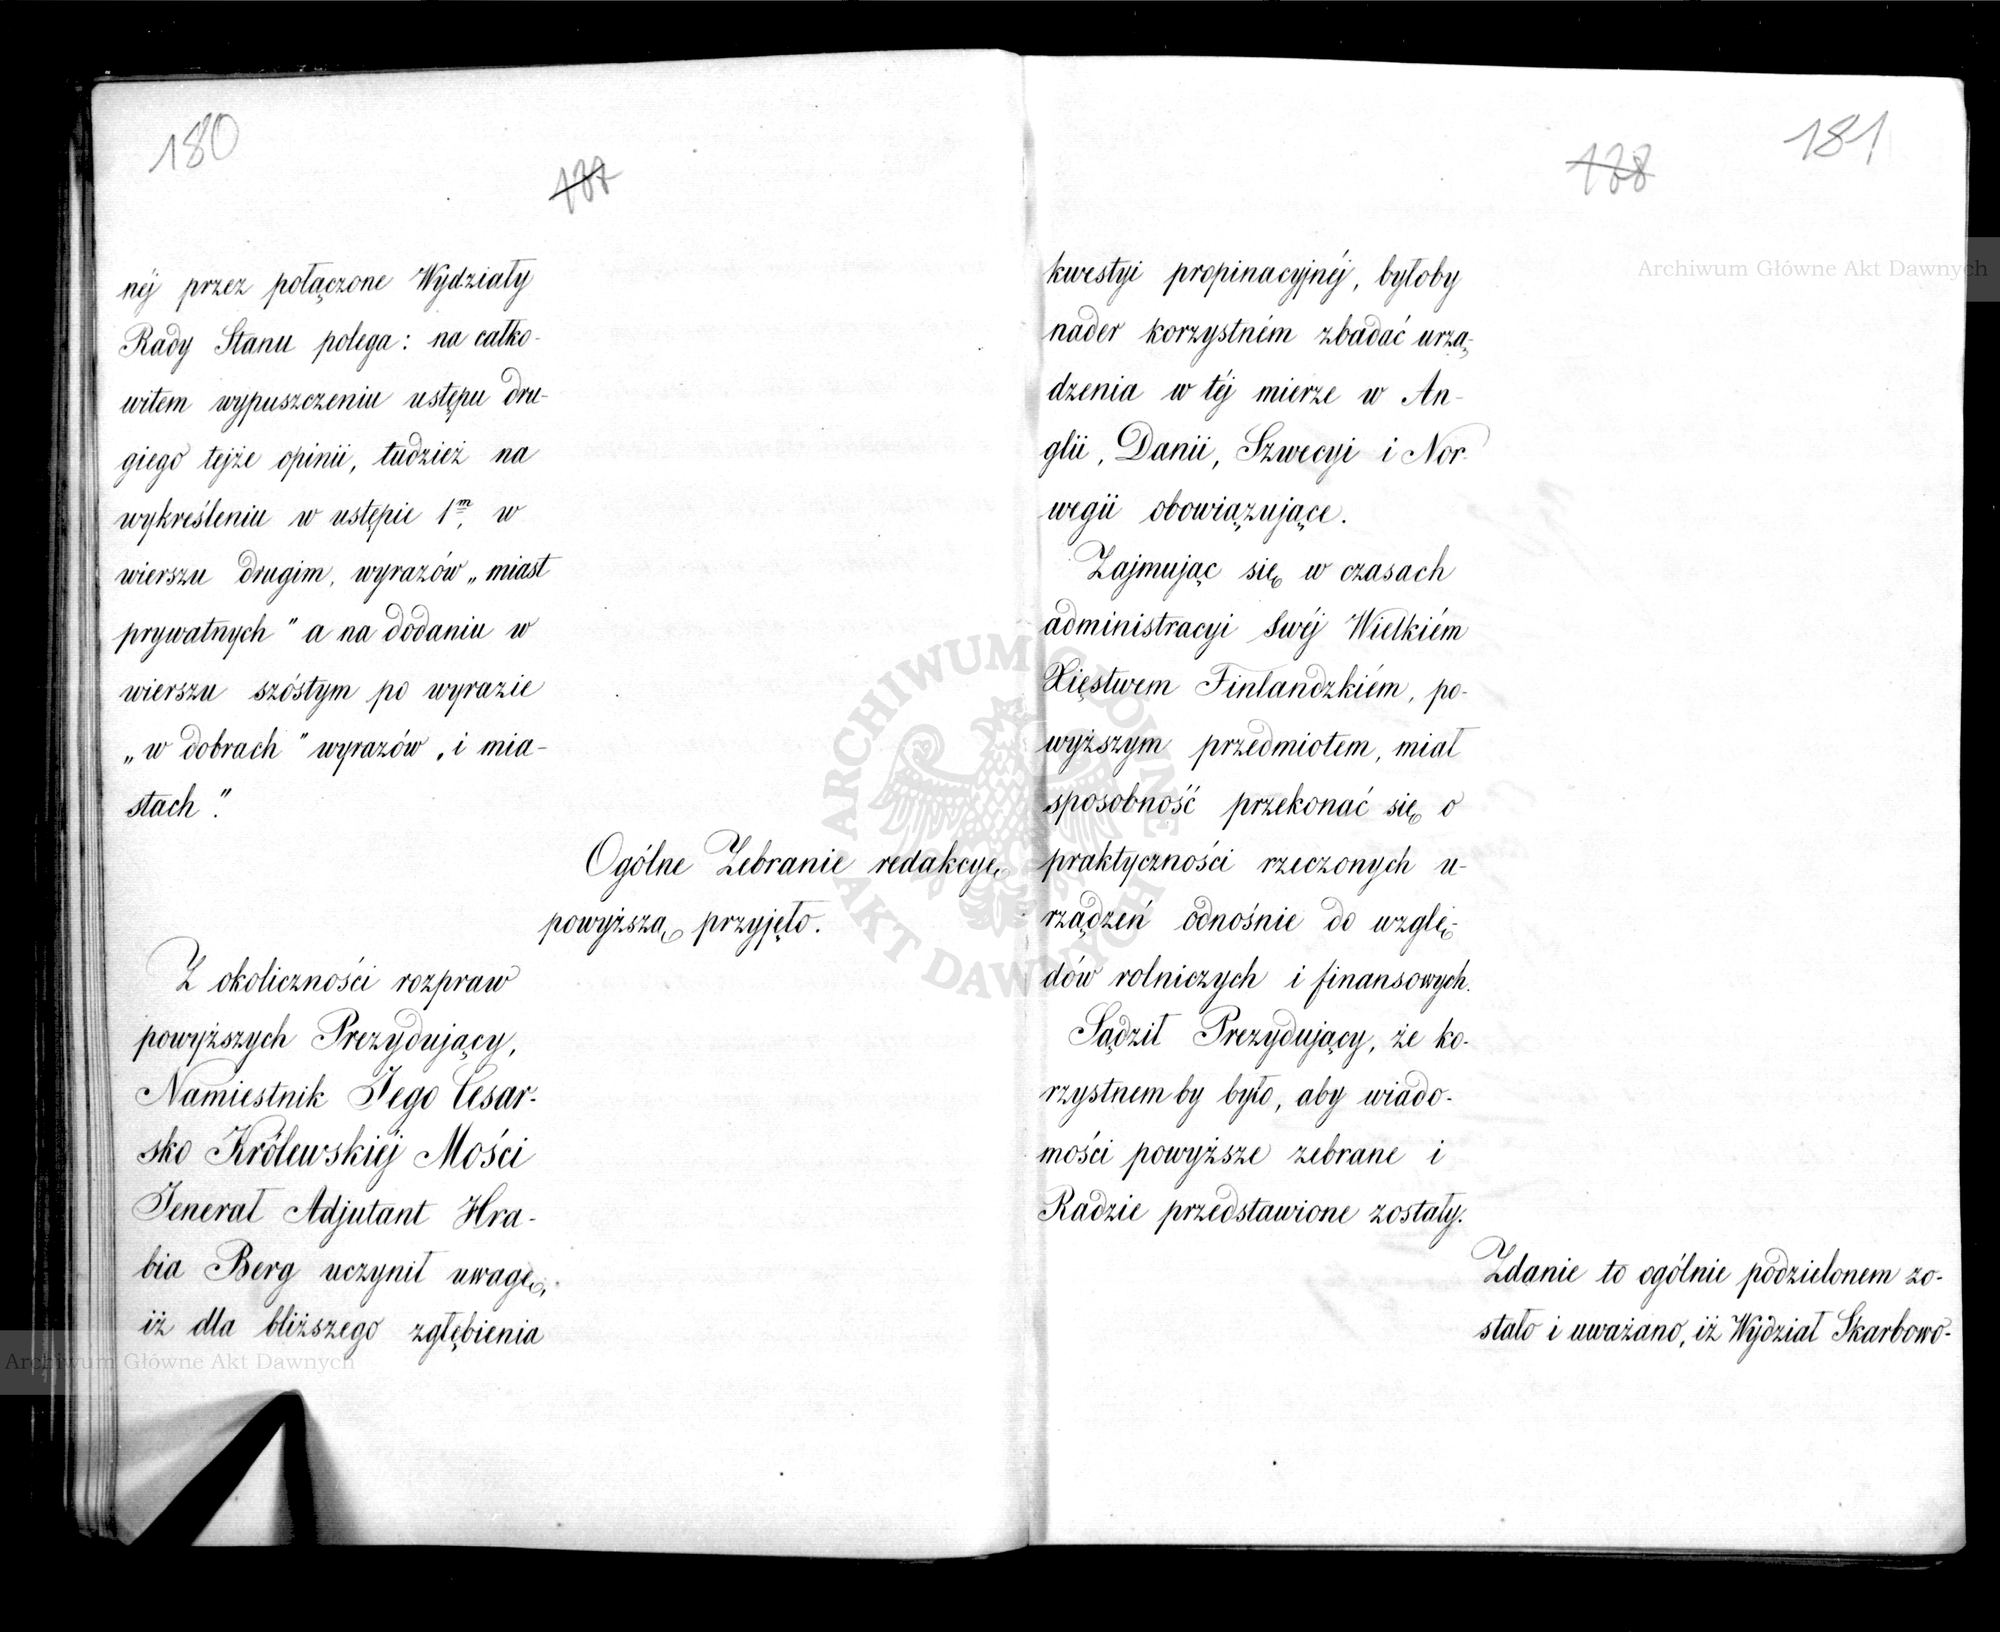 180
187
néj przez połączone Wydziały
Rady Stanu polega: na całko-
witem wypuszczeniu ustępu dru-
giego tejże opinii, tudzież na
wykreśleniu w ustępie 1m, w
wierszu drugim, wyrazów „miast
prywatnych" a na dodaniu w
wierszu szóstym po wyrazie
„w dobrach" wyrazów „i mia-
stach".
Ogólne Zebranie redakcyę
powyższą przyjęło.
Z okoliczności rozpraw
powyższych Prezydujący,
Namiestnik Jego Cesar-
sko Królewskiéj Mości
Jenerał Adjutant Hra-
bia Berg uczynił uwagę,
iż dla bliższego zgłębienia
181
188
kwestyi propinacyjnéj, byłoby
nader korzystném zbadać urzą-
dzenia w téj mierze w An-
glii, Danii, Szwecyi i Nor-
wegii obowiązujące.
Zajmując się w czasach
administracyi Swéj Wielkiém
Xięstwem Finlandzkiém, po-
wyższym przedmiotem, miał
sposobność przekonać się o
praktyczności rzeczonych u-
rządzeń odnośnie do wzglę-
dów rolniczych i finansowych.
Sądził Prezydujący, że ko-
rzystnem by było, aby wiado-
mości powyższe zebrane i
Radzie przedstawione zostały.
Zdanie to ogólnie podzielonem zo-
stało i uważano, iż Wydział Skarbowo-
Archiwum Główne Akt Dawnych
Archiwum Główne Akt Dawnych
ARCHIWUM GŁÓWNE
AKT DAWNYCH